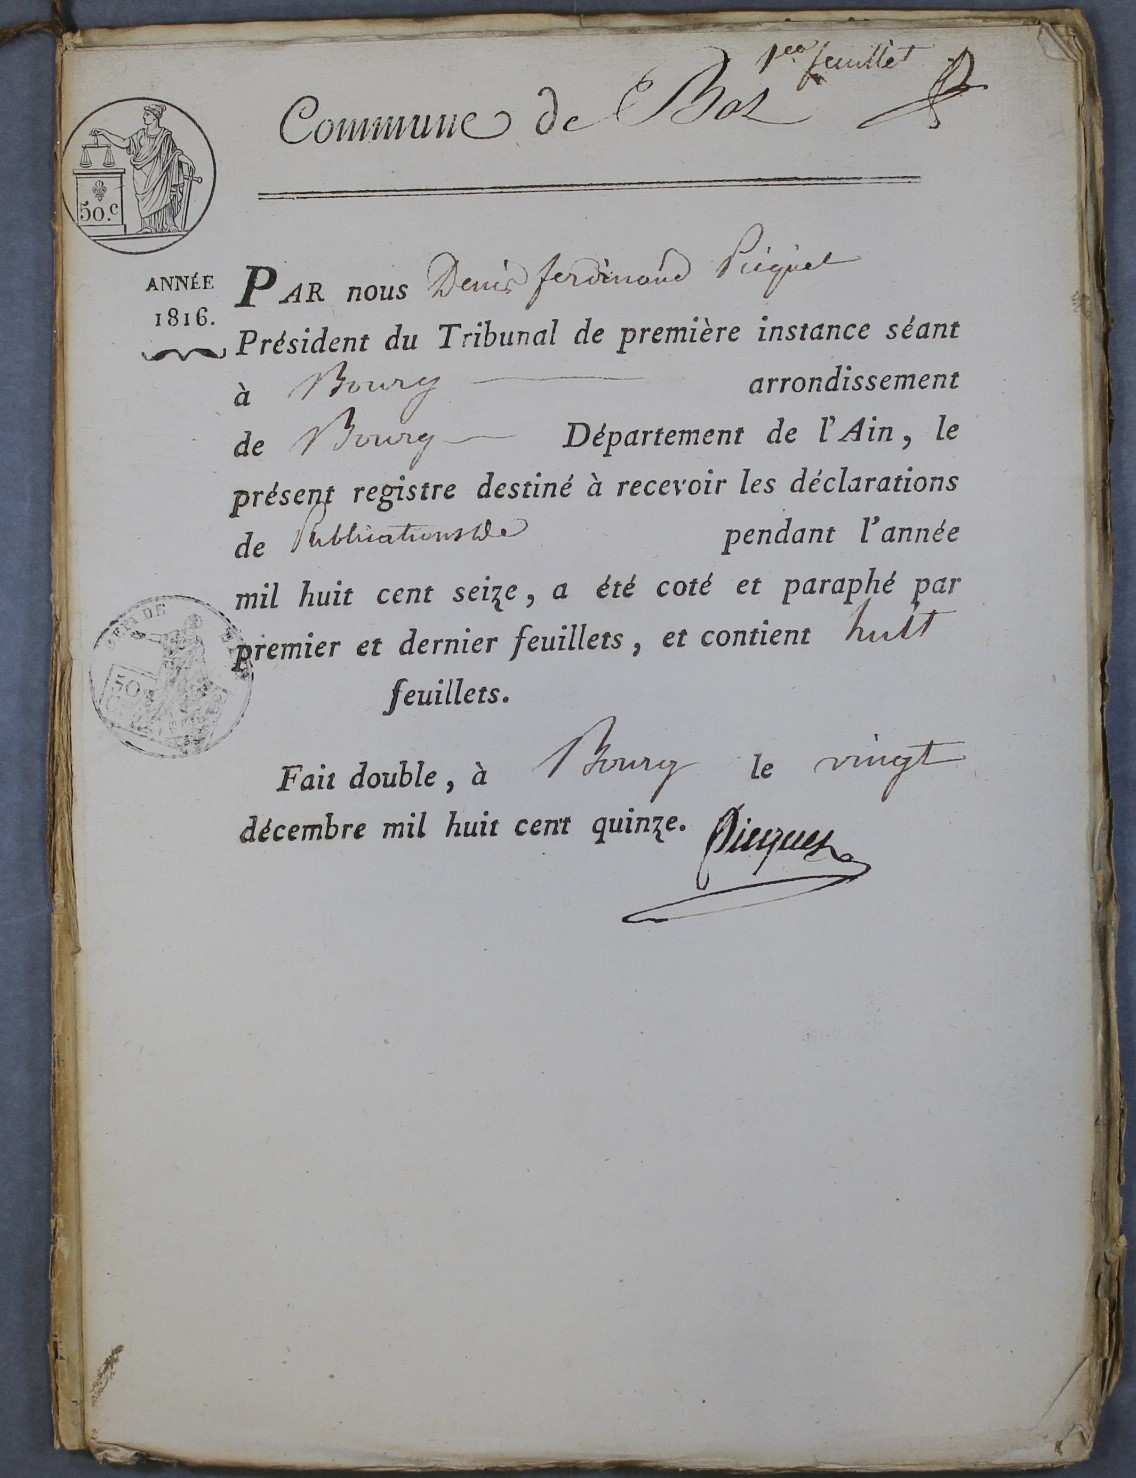 1er feuillet
Commune de Boz
50.c
ANNÉE
1816.
PAR nous Denis ferdinand Picquet
Président du Tribunal de première instance séant
à Bourg arrondissement
de Bourg Département de l'Ain, le
présent registre destiné à recevoir les déclarations
de Publications de pendant l'année
mil huit cent seize, a été coté et paraphé par
premier et dernier feuillets, et contient huit
feuillets.
50
Fait double, à Bourg le vingt
décembre mil huit cent quinze. Picquet